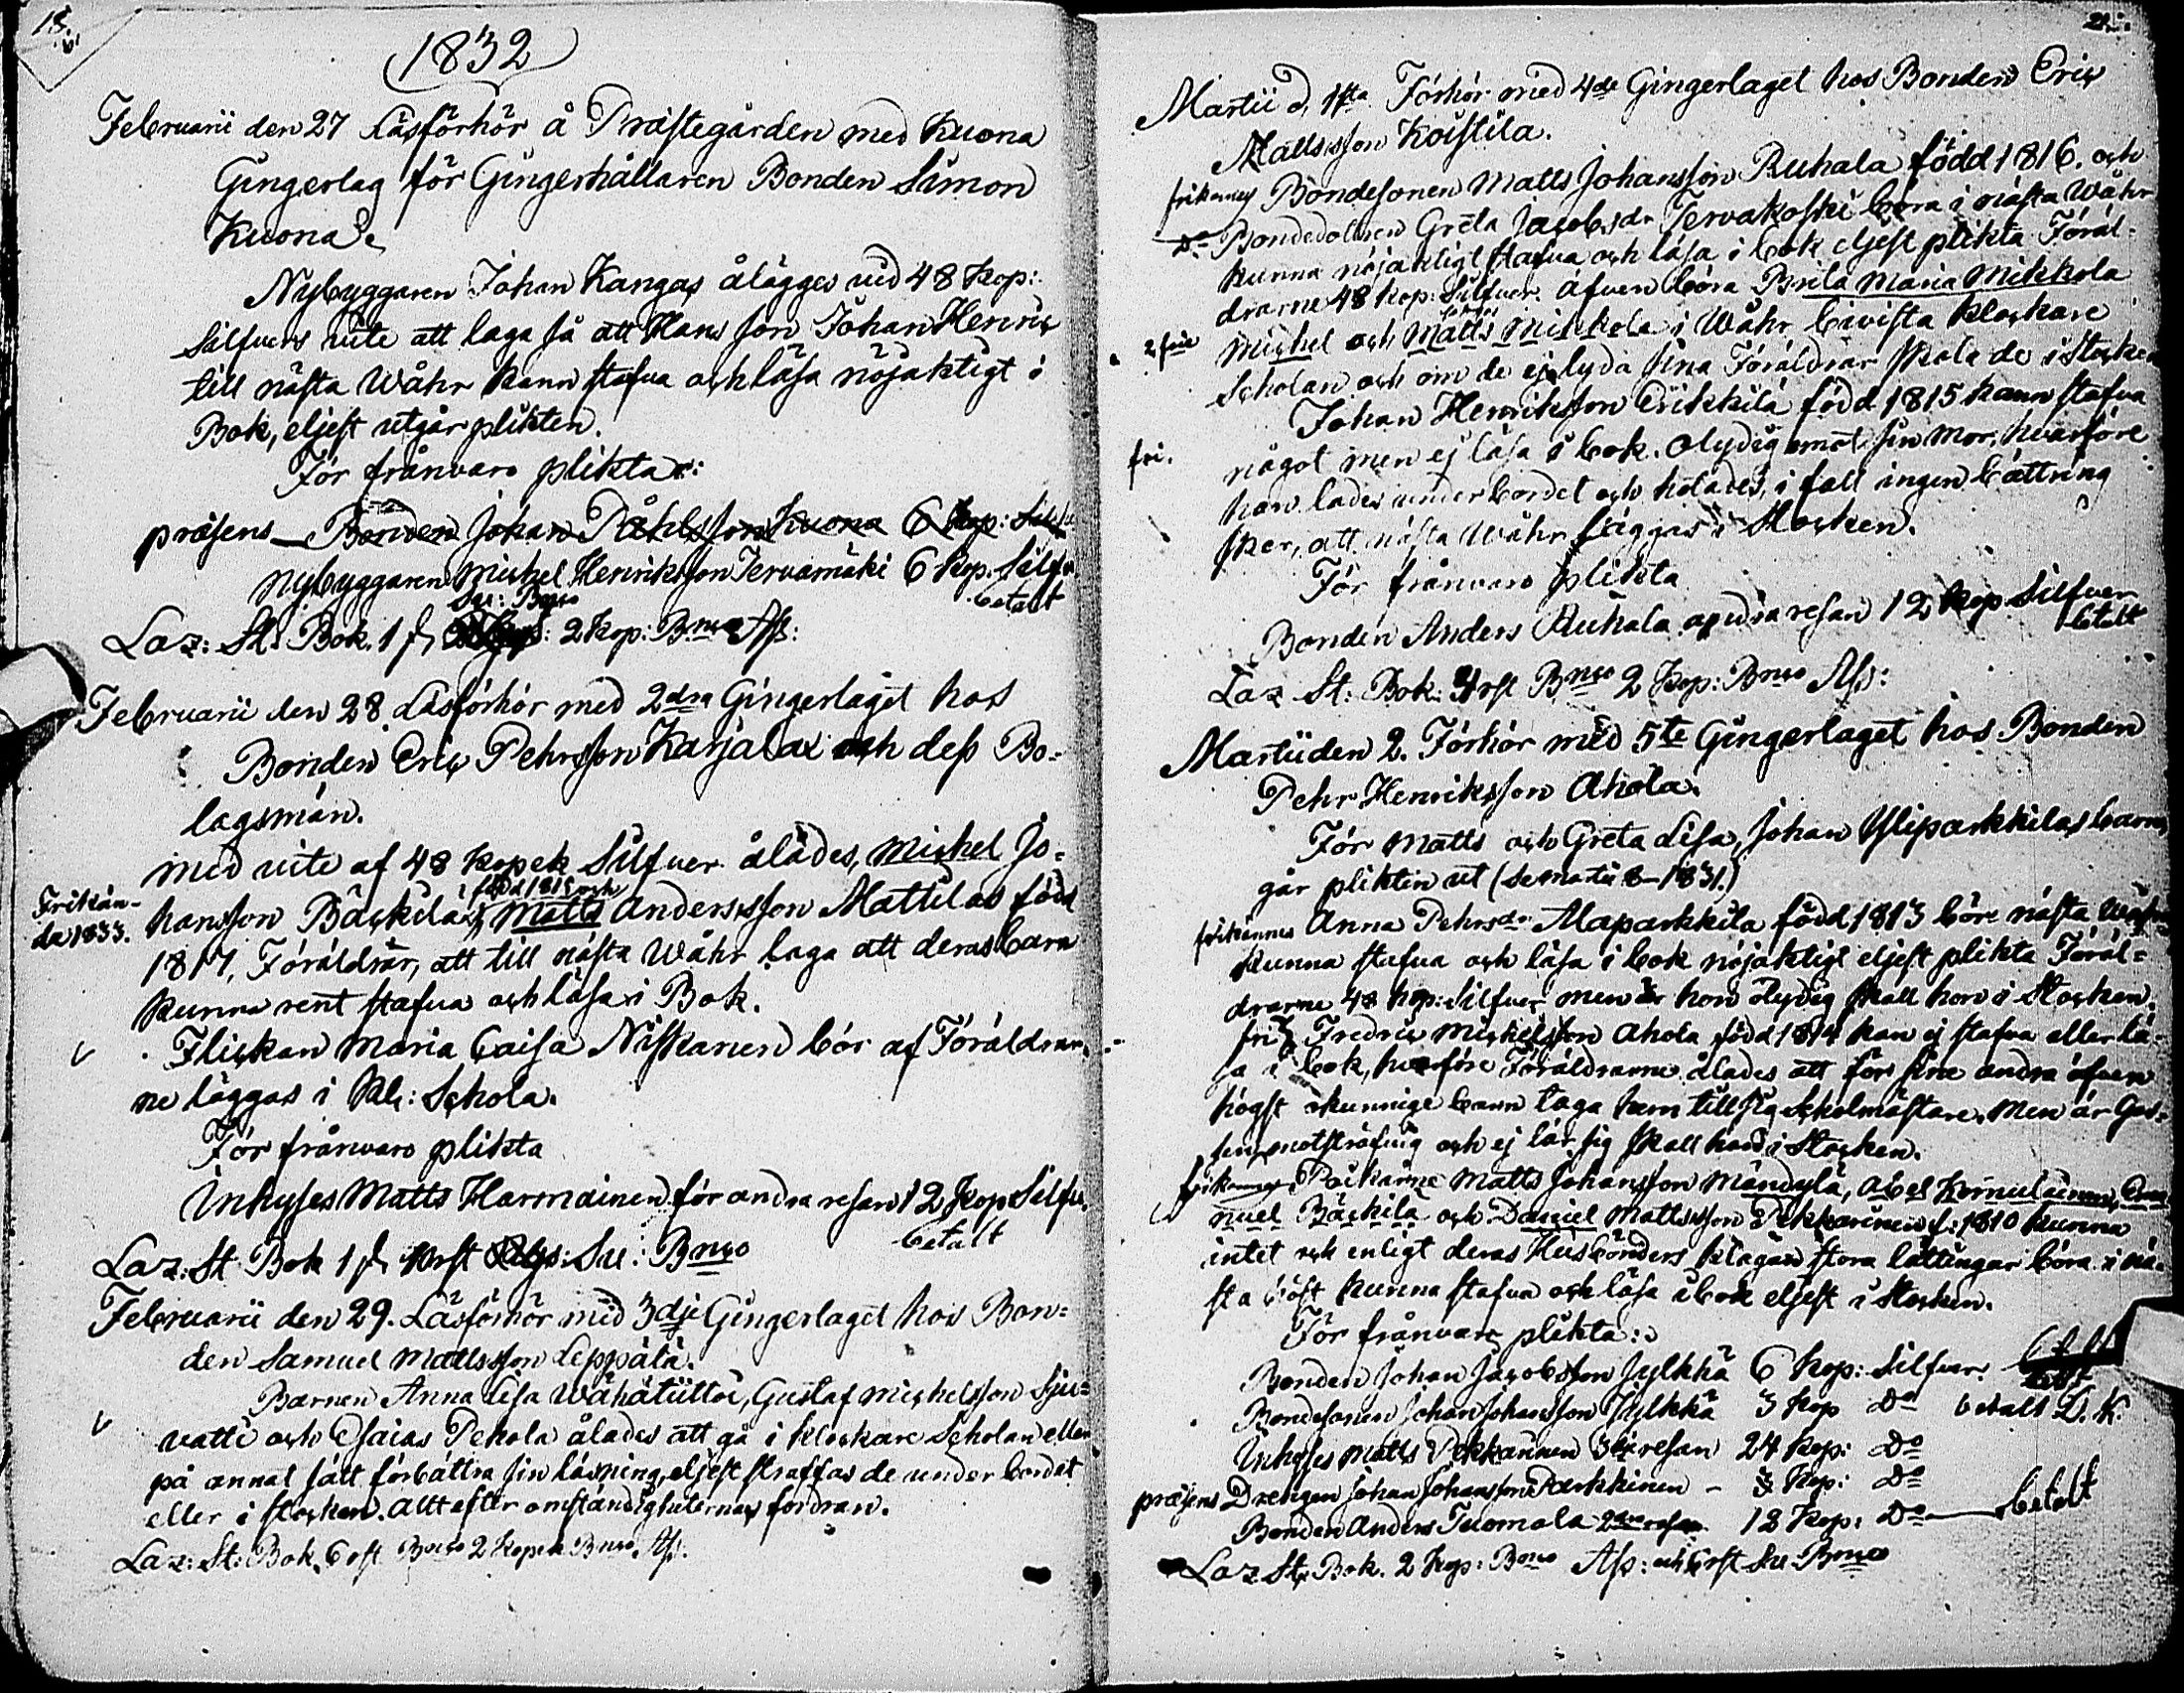 1832
Februarii den 27 Läsförhör å Prästegården med Kuona
Gingerlag för Gingerhållaren Bonden Simon
Kuona.
Nybyggaren Johan Kangas ålägges vid 48 kop:
Silfvers vite att laga så att Hans son Johan Henric
till nästa Wåhr kann stafva och läsa nöjaktigt i
Bok, eljest utgår plikten.
För frånvaro plikta:
präsens Bonden Johan Påhlsson Kuona 6 kop: Silfv
Nybyggaren Michel Henriksson Tervamäki 6 kop. Silfv.
betalt
Laz: St. Bok. 1 2 kop: Bnco Ass:
Februarii den 28 Läsförhör med 2dra Gingerlaget hos
Bonden Eric Pehrsson Karjalax och dess Bo-
lagsmän.
med vite af 48 kopek Silfver ålades, Michel Jo-
född 1815 och
Frikän-
da 1833.
hansson Bäckilas, Matts Andersson Mattilas född
1817, Föräldrar, att till nästa Wåhr laga att deras barn
kunna rent stafva och läsa i Bok.
Flickan Maria Caisa Niskanen bör af Föräldrar-
ne läggas i Kl: Schola.
För frånvaro plikta
Inhyses Matts Harmainen för andra resan 12 kop Silfv.
betalt
Laz: St Bok 1 Sv: Bnco
Februarii den 29. Läsförhör med 3dje Gingerlaget hos Bon-
den Samuel Mattsson Leppälä.
Barnen Anna Lisa Wähätiittoi, Gustaf Michelsson
och Esaias Pekola ålades att gå i klockare Scholan eller
på annat sätt förbättra sin läsning, eljest straffas de under bordet
eller i stocken. allt efter omständigheternas fordran.
Laz: St: Bok. 6 rst Bnco 2 kopek Bnco. Ass.
Martii d. 1sta Förhör med 4de Gingerlaget hos Bonden Eric
Mattsson Koistila.
frikännes Bondesonen Matts Johansson Ruhala född 1816. och
Do Bondedottren Greta Jacobsdr Tervakoski böra i nästa Wåhr
kunna nöjaktigt stafva och läsa i bok eljest plikta Föräl-
drarne 48 kop: Silfver. äfven böra Brita Maria Mikkola
2 frie Michel och Matts Mikkola i Wåhr bivista klockare
Scholan och om de ej lyda sina Föräldrar skola de i Stocken
Johan Henriksson Erikkilä född 1815 kann stafva
fri.
något men ej läsa i bok. olydig emot sin mor, hvarföre
han lades under bordet och hotades, i fall ingen bättring
sker, att nästa Wåhr läggas i Stocken.
För frånvaro plikta
Bonden Anders Ruhala andra resan 12 kop Silfver
betalt
Laz St: Bok: 4 rst Bnco 2 kop: Bnco Ass:
Martii den 2. Förhör med 5te Gingerlaget hos Bonden
Pehr Henriksson Ahola.
För Matts och Greta Lisa, Johan Yliparkkilas barn,
går plikten ut (se martii 8 - 1831.)
frikännes Anna Pehrsdr Alaparkkila född 1813 böre nästa Wåhr
kunna stafva och läsa i bok nöjaktigt eljest plikta Föräl-
drarne 48 kop: Silfver men är hon olydig skall hon i Stocken.
fri Fredric Michelsson Ahola född 1814 kan ej stafva eller lä-
sa i bok, hvarföre Föräldrarne ålades att för sine andra äfven
högst okunnige barn taga hem till sig Scholmästare. Men är Gos-
sen motsträfvig och ej lär sig skall han i Stocken.
frikännes Pojkarne Matts Johansson Mändylä, Abel Kornulainen, Ema
nuel Bäckila och Daniel Mattsson Pekkarinen f: 1810 kunna
intet och enligt deras Husbönders klagan stora lättingar böra i nä-
sta höst kunna stafva och läsa i bok eljest i Stocken.
För frånvaro plikta:
Bonden Johan Jacobsson Jylkkä 6 kop: Silfver.
Bondesonen Johan Johansson Jylkkä 3 kop Do betalt L. K.
Inhyses Matts Pekkarinen 3dje resan 24 kop: Do
präsens Drengen Johan Johansson Parkkinen - 3 kop: Do
Bonden Anders Tuomala 2dra resan 12 kop: Do betalt
Laz St: Bok. 2 kop: Bnco Ass: och 6 rst Sv: Bnco